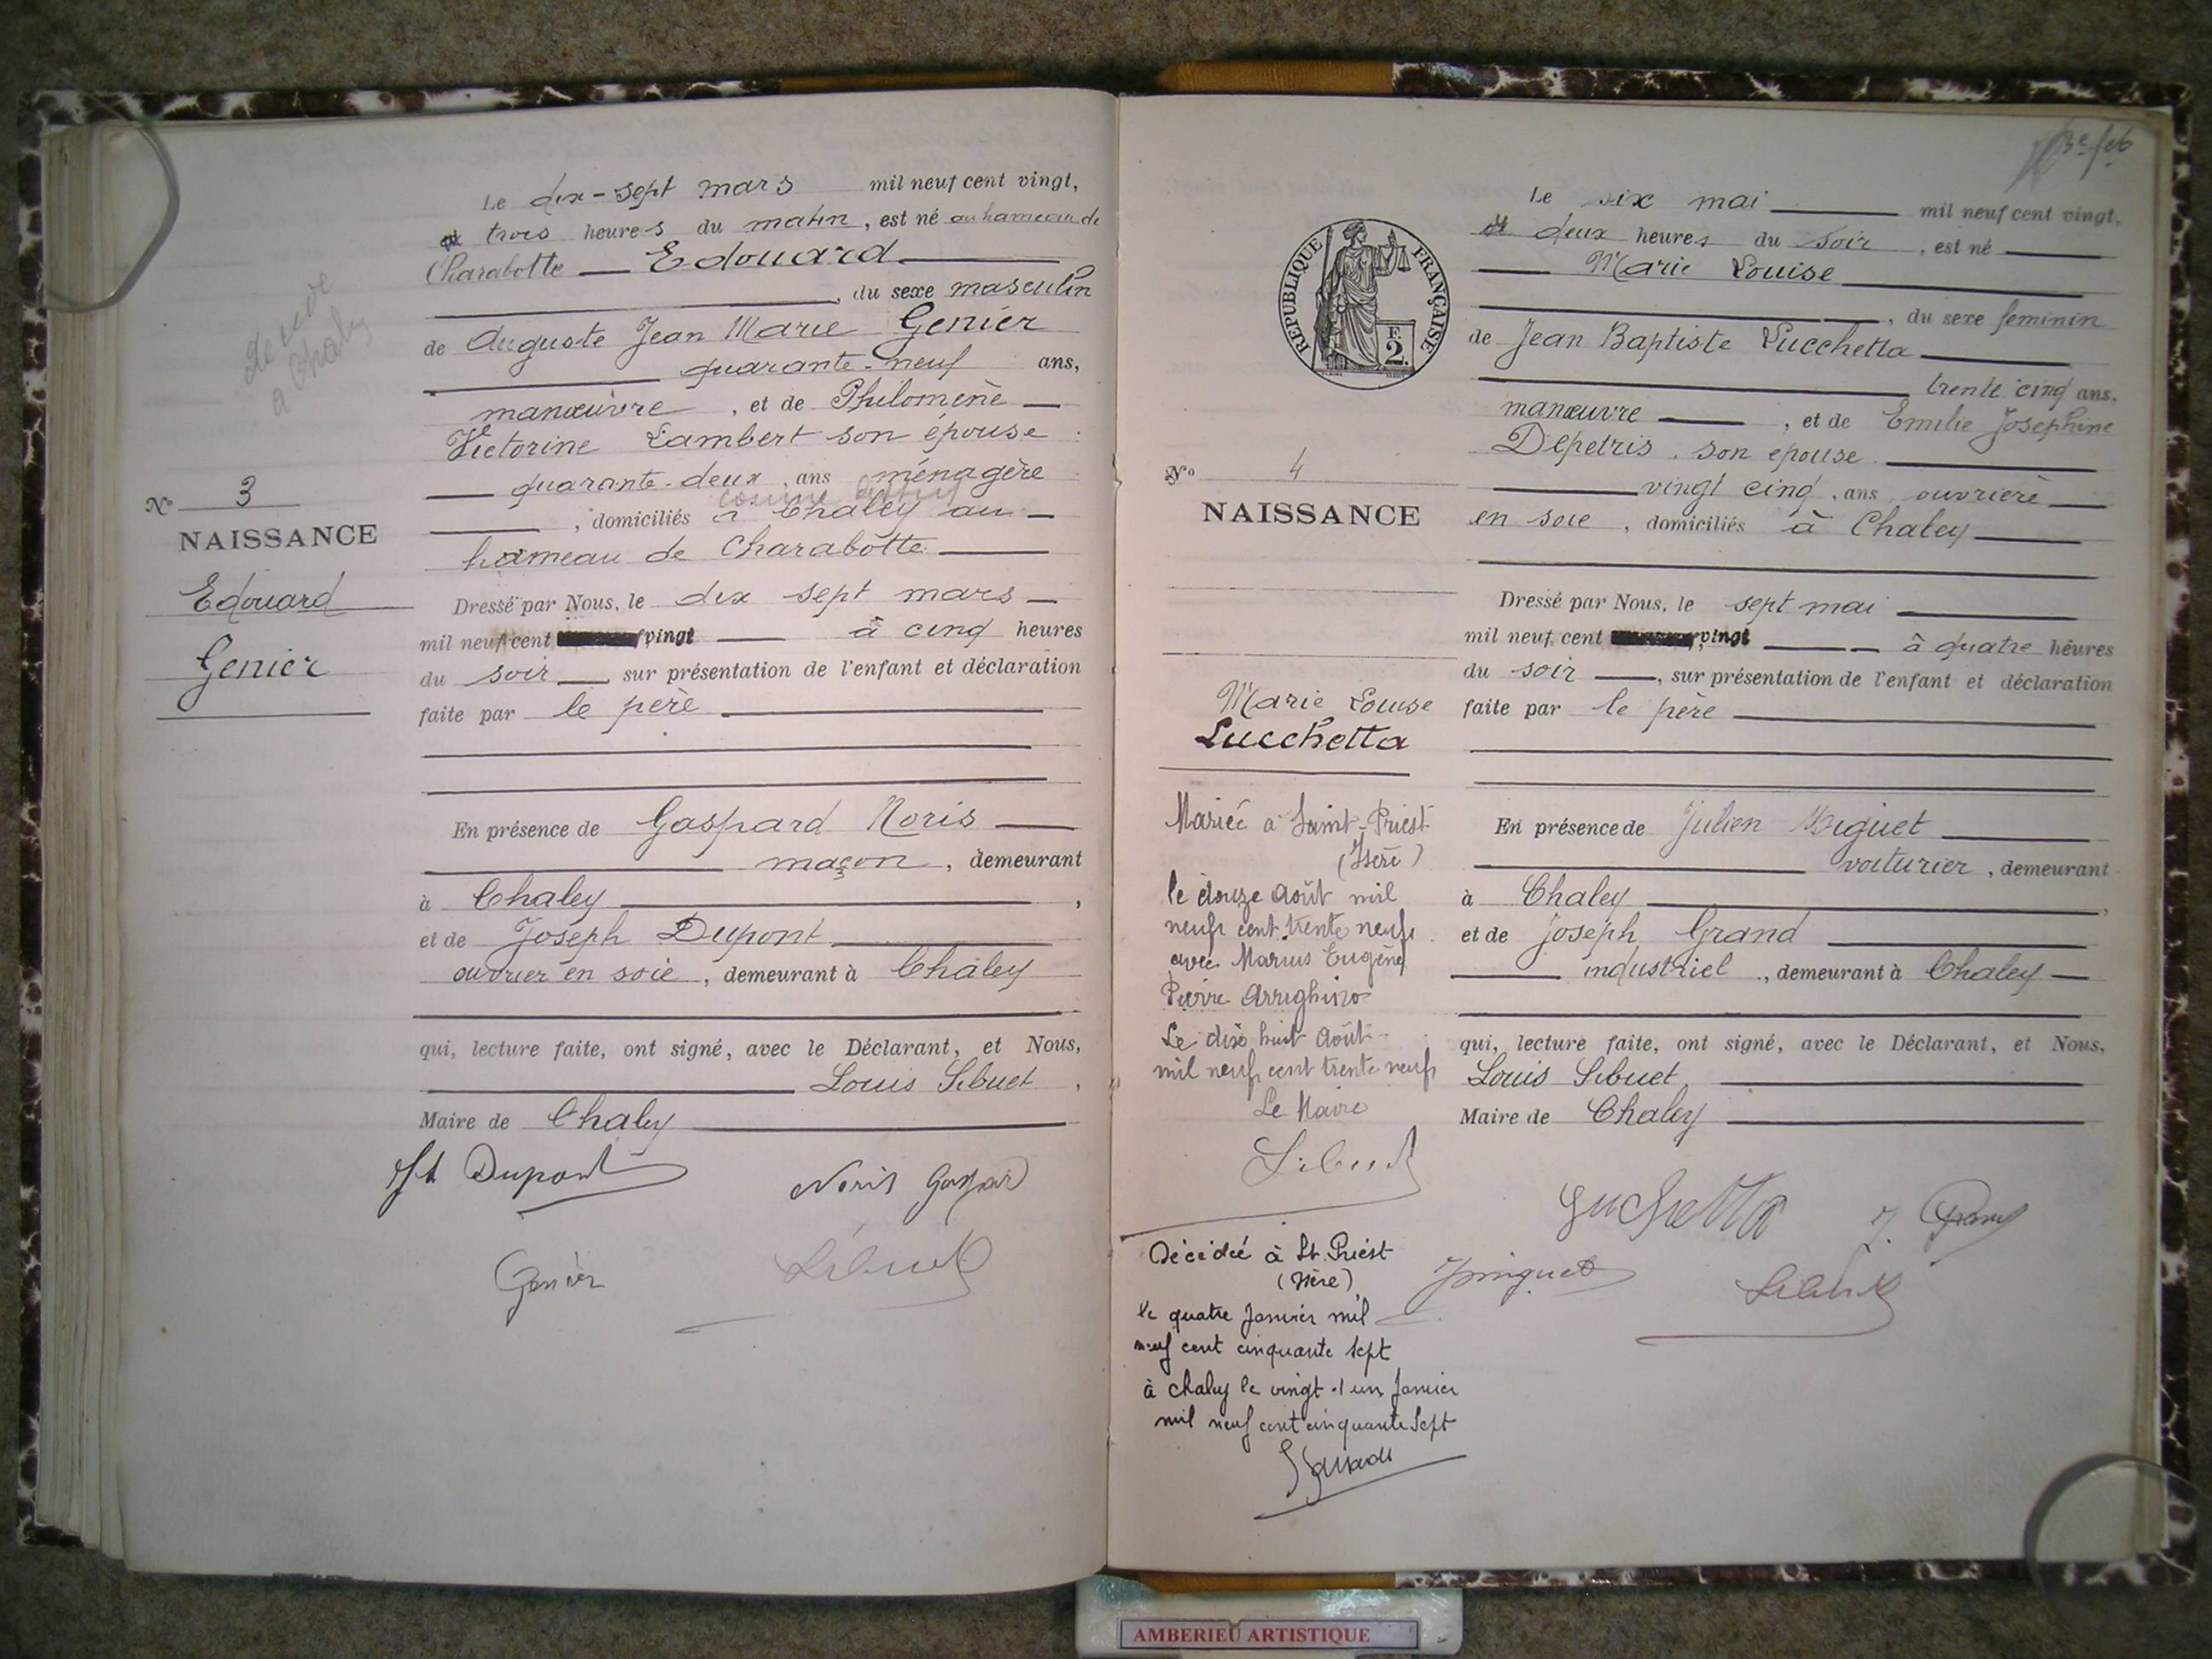 décédé
à Chaley
Le dix-sept mars mil neuf cent vingt,
à trois heures du matin, est né au hameau de
Charabotte Edouard
, du sexe masculin
de Auguste Jean Marie Genier
quarante-neuf ans,
manœuvre, et de Philomène
Victorine Lambert son épouse
quarante-deux, ans ménagère
, domiciliés à Chaley au
hameau de Charabotte
N° 3
NAISSANCE
Edouard
Genier
Dressé par Nous, le dix sept mars
mil neuf cent vingt à cinq heures
du soir sur présentation de l'enfant et déclaration
faite par le père
En présence de Gaspard Noris
maçon, demeurant
à Chaley,
et de Joseph Dupont
ouvrier en soie, demeurant à Chaley
qui, lecture faite, ont signé, avec le Déclarant, et Nous,
Louis Sibuet,
Maire de Chaley
Jh Dupont
Noris Gaspar
Genier
Sibuet
Le six mai mil neuf cent vingt,
à deux heures du soir, est né
Marie Louise
, du sexe feminin
de Jean Baptiste Lucchetta
trente cinq ans,
manœuvre, et de Emilie Josephine
Depetris son epouse
vingt cinq, ans ouvrière
en soie, domiciliés à Chaley
RÉPUBLIQUE FRANÇAISE
F.
2.
N° 4
NAISSANCE
Marie Louise
Lucchetta
Dressé par Nous, le sept mai
mil neuf cent vingt à quatre heures
du soir, sur présentation de l'enfant et déclaration
faite par le père
En présence de Julien Miguet
voiturier, demeurant
à Chaley,
et de Joseph Grand
industriel, demeurant à Chaley
qui, lecture faite, ont signé, avec le Déclarant, et Nous,
Louis Sibuet
Maire de Chaley
Mariée à Saint-Priest
(Isère)
le douze Août mil
neuf cent trente neuf
avec Marius Eugène
Pierre Arrighino
Le dix huit Août
mil neuf cent trente neuf
Le Maire
Sibuet
Décédée à St. Priest
(Isère)
le quatre Janvier mil
neuf cent cinquante sept
à Chaley le vingt et un Janvier
mil neuf cent cinquante Sept
Luchetta
J. Grand
Jmiguet
Sibuet
AMBERIEU ARTISTIQUE